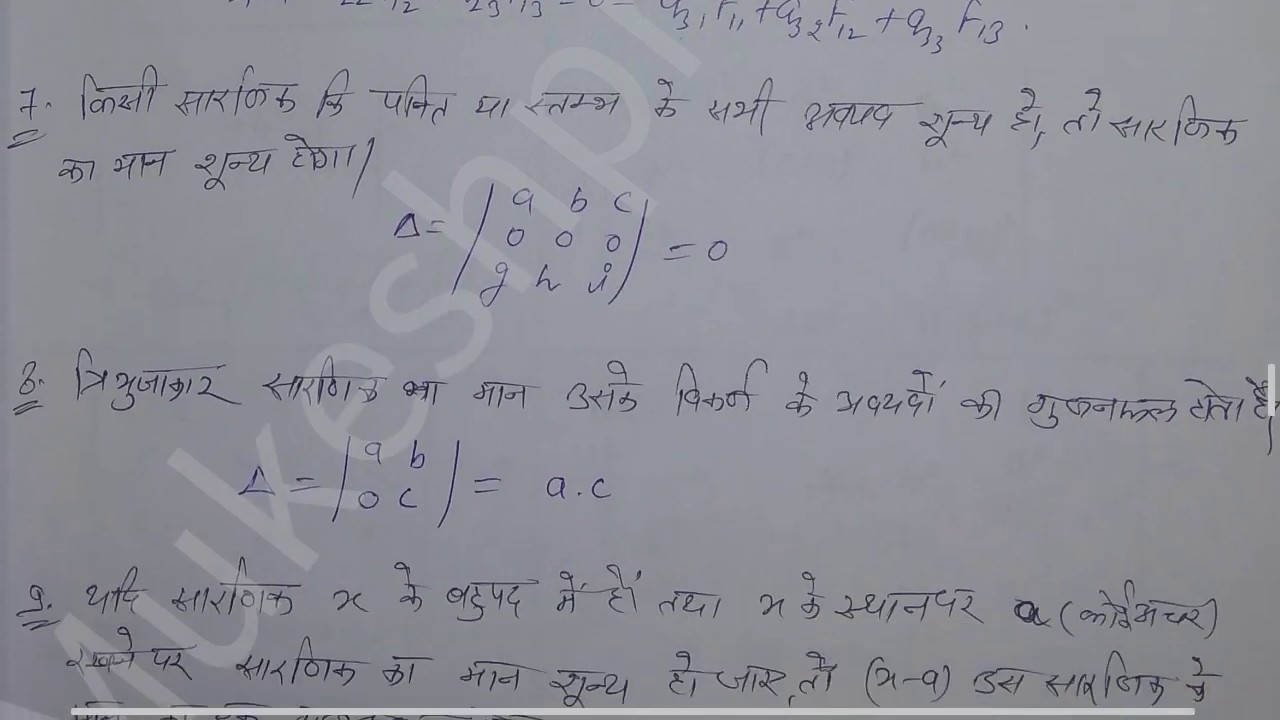 = 0 = a₃₁F₁₁ + a₃₂F₁₂ + a₃₃F₁₃.
7. किसी सारणिक कि पंक्ति या स्तम्भ के सभी अवयव शून्य हो, तो सारणिक
का मान शून्य होगा।
a b c
Δ = | 0 0 0 | = 0
g h i
8. त्रिभुजाकार सारणिक का मान उसके विकर्ण के अवयवों की गुणनफल होता है,
a b
Δ = | 0 c | = a.c
9. यदि सारणिक x के बहुपद में हों तथा x के स्थान पर a (कोई अचर)
रखने पर सारणिक का मान शून्य हो जाए, तो (x-a) उस सारणिक के